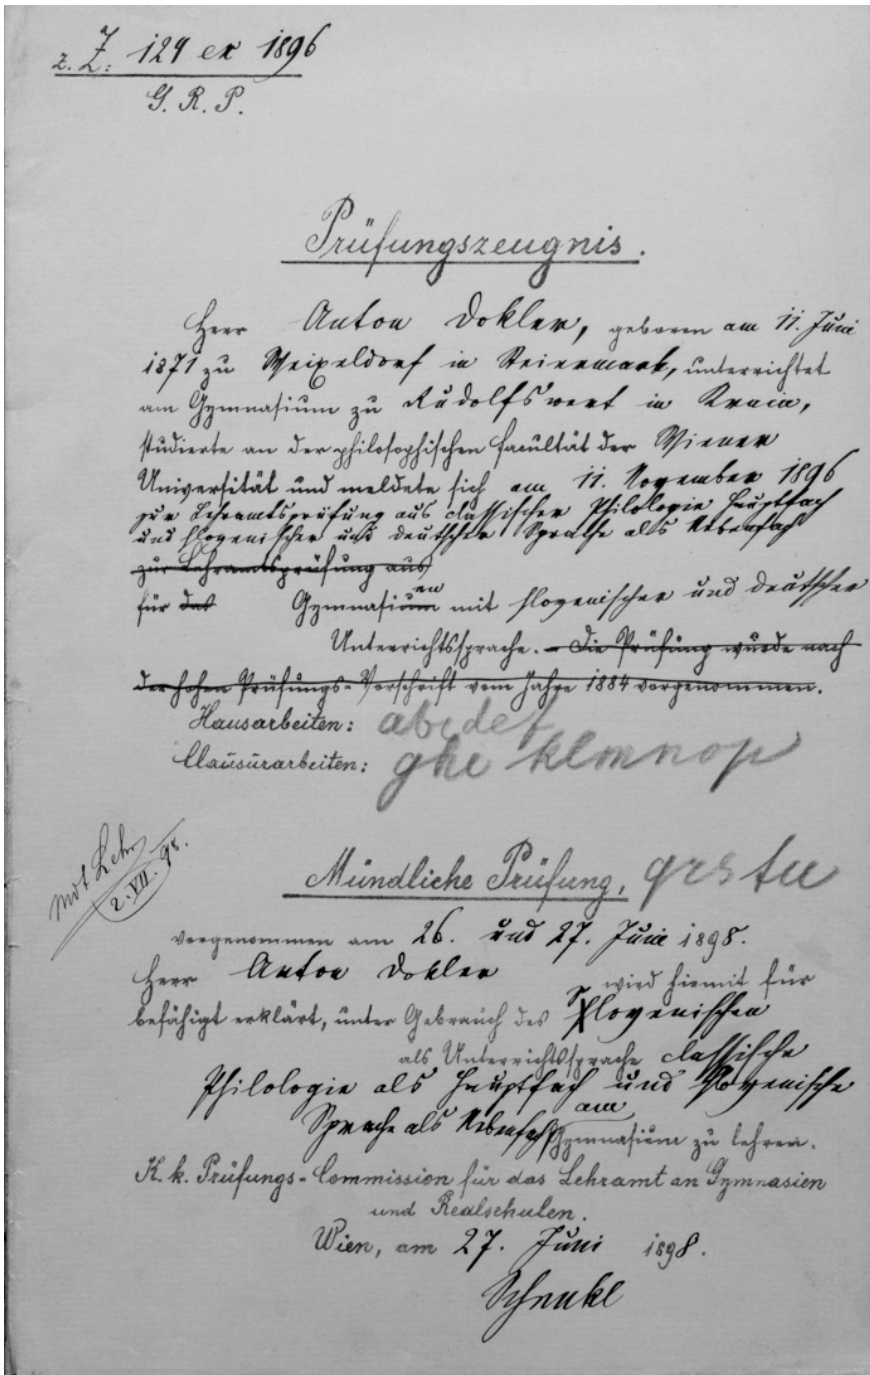 z. Z. 124 ex 1896
G. R. P.
Prüfungszeugnis.
Herr Anton Dokler, geboren am 11. Juni
1871 zu Weixeldorf in Steiermark, unterrichtet
am Gymnasium zu Rudolfswert in Krain,
studierte an der philosophischen Facultät der Wiener
Universität und meldete sich am 11. November 1896
zur Lehramtsprüfung aus classischer Philologie Hauptfach
und slovenischer und deutscher Sprache als Nebenfach
zur Lehramtsprüfung aus
für das Gymnasien mit slovenischer und deutscher
Unterrichtssprache. – Die Prüfung wurde nach
der hohen Prüfungs-Vorschrift vom Jahre 1884 vorgenommen.
Hausarbeiten: abcdef
Clausurarbeiten: ghi klmnop
2. VII. 98.
Mündliche Prüfung, qrstu
vorgenommen am 26. und 27. Juni 1898.
Herr Anton Dokler wird hiemit für
befähigt erklärt, unter Gebrauch des Slovenischen
als Unterrichtssprache classische
Philologie als Hauptfach und slovenische
Sprache als Nebenfach am
Gymnasium zu lehren.
K. k. Prüfungs-Commission für das Lehramt an Gymnasien
und Realschulen.
Wien, am 27. Juni 1898.
Schenkl